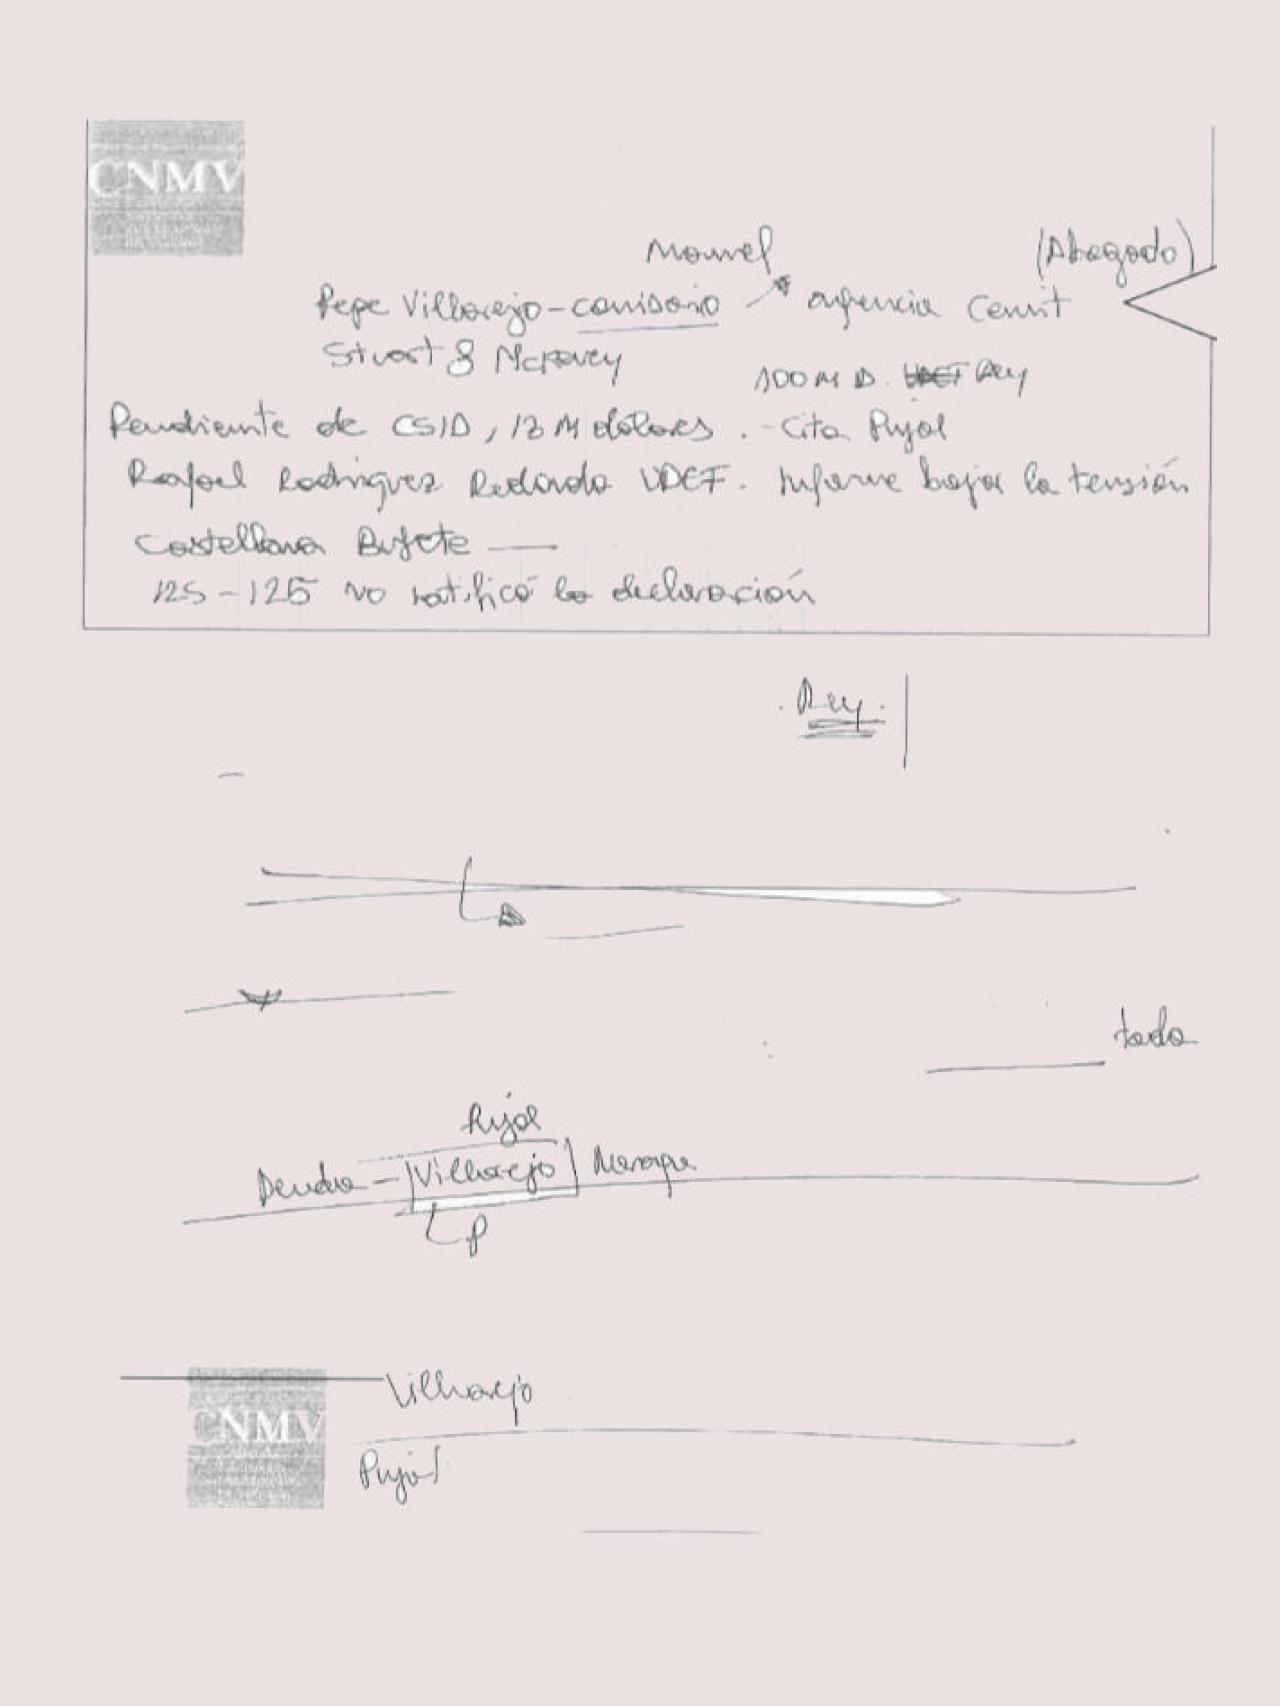 CNMV
Manuel (Abogado)
Pepe Villarejo - comisario agencia Cenit
Stuart & McKeney
100 M D. Rey
Pendiente de CSID, 13 M dolares. - Cita Pujol
Rafael Rodriguez Redondo UDEF. Informe bajar la tensión
Castellana Bufete —
125 - 125 No ratificó la declaración
. Rey .
toda
Pujol
Deudra - Villarejo
P
Villarejo
CNMV
Pujol